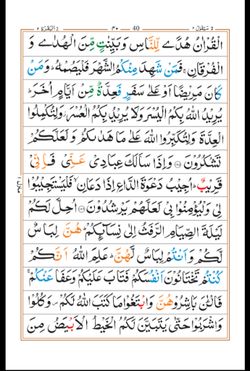 سيقول ٢ ٣٠ 40 البقرة ٢
الْقُرْاٰنُ هُدًى لِّلنَّاسِ وَ بَيِّنٰتٍ مِّنَ الْهُدٰى وَ
الْفُرْقَانِ ۚ فَمَنْ شَهِدَ مِنْكُمُ الشَّهْرَ فَلْيَصُمْهُ ؕ وَ مَنْ
كَانَ مَرِيْضًا اَوْ عَلٰى سَفَرٍ فَعِدَّةٌ مِّنْ اَيَّامٍ اُخَرَ ؕ
يُرِيْدُ اللّٰهُ بِكُمُ الْيُسْرَ وَلَا يُرِيْدُ بِكُمُ الْعُسْرَ وَلِتُكْمِلُوا
الْعِدَّةَ وَلِتُكَبِّرُوا اللّٰهَ عَلٰى مَا هَدٰىكُمْ وَ لَعَلَّكُمْ
تَشْكُرُوْنَ ۝ وَاِذَا سَاَلَكَ عِبَادِيْ عَنِّيْ فَاِنِّيْ
قَرِيْبٌ ؕ اُجِيْبُ دَعْوَةَ الدَّاعِ اِذَا دَعَانِ ۙ فَلْيَسْتَجِيْبُوْا
لِيْ وَلْيُؤْمِنُوْا بِيْ لَعَلَّهُمْ يَرْشُدُوْنَ ۝ اُحِلَّ لَكُمْ
لَيْلَةَ الصِّيَامِ الرَّفَثُ اِلٰى نِسَآئِكُمْ ؕ هُنَّ لِبَاسٌ
لَّكُمْ وَ اَنْتُمْ لِبَاسٌ لَّهُنَّ ؕ عَلِمَ اللّٰهُ اَنَّكُمْ
كُنْتُمْ تَخْتَانُوْنَ اَنْفُسَكُمْ فَتَابَ عَلَيْكُمْ وَعَفَا عَنْكُمْ ۚ
فَالْـٰٔنَ بَاشِرُوْهُنَّ وَابْتَغُوْا مَا كَتَبَ اللّٰهُ لَكُمْ ۪ وَكُلُوْا
وَاشْرَبُوْا حَتّٰى يَتَبَيَّنَ لَكُمُ الْخَيْطُ الْاَبْيَضُ مِنَ